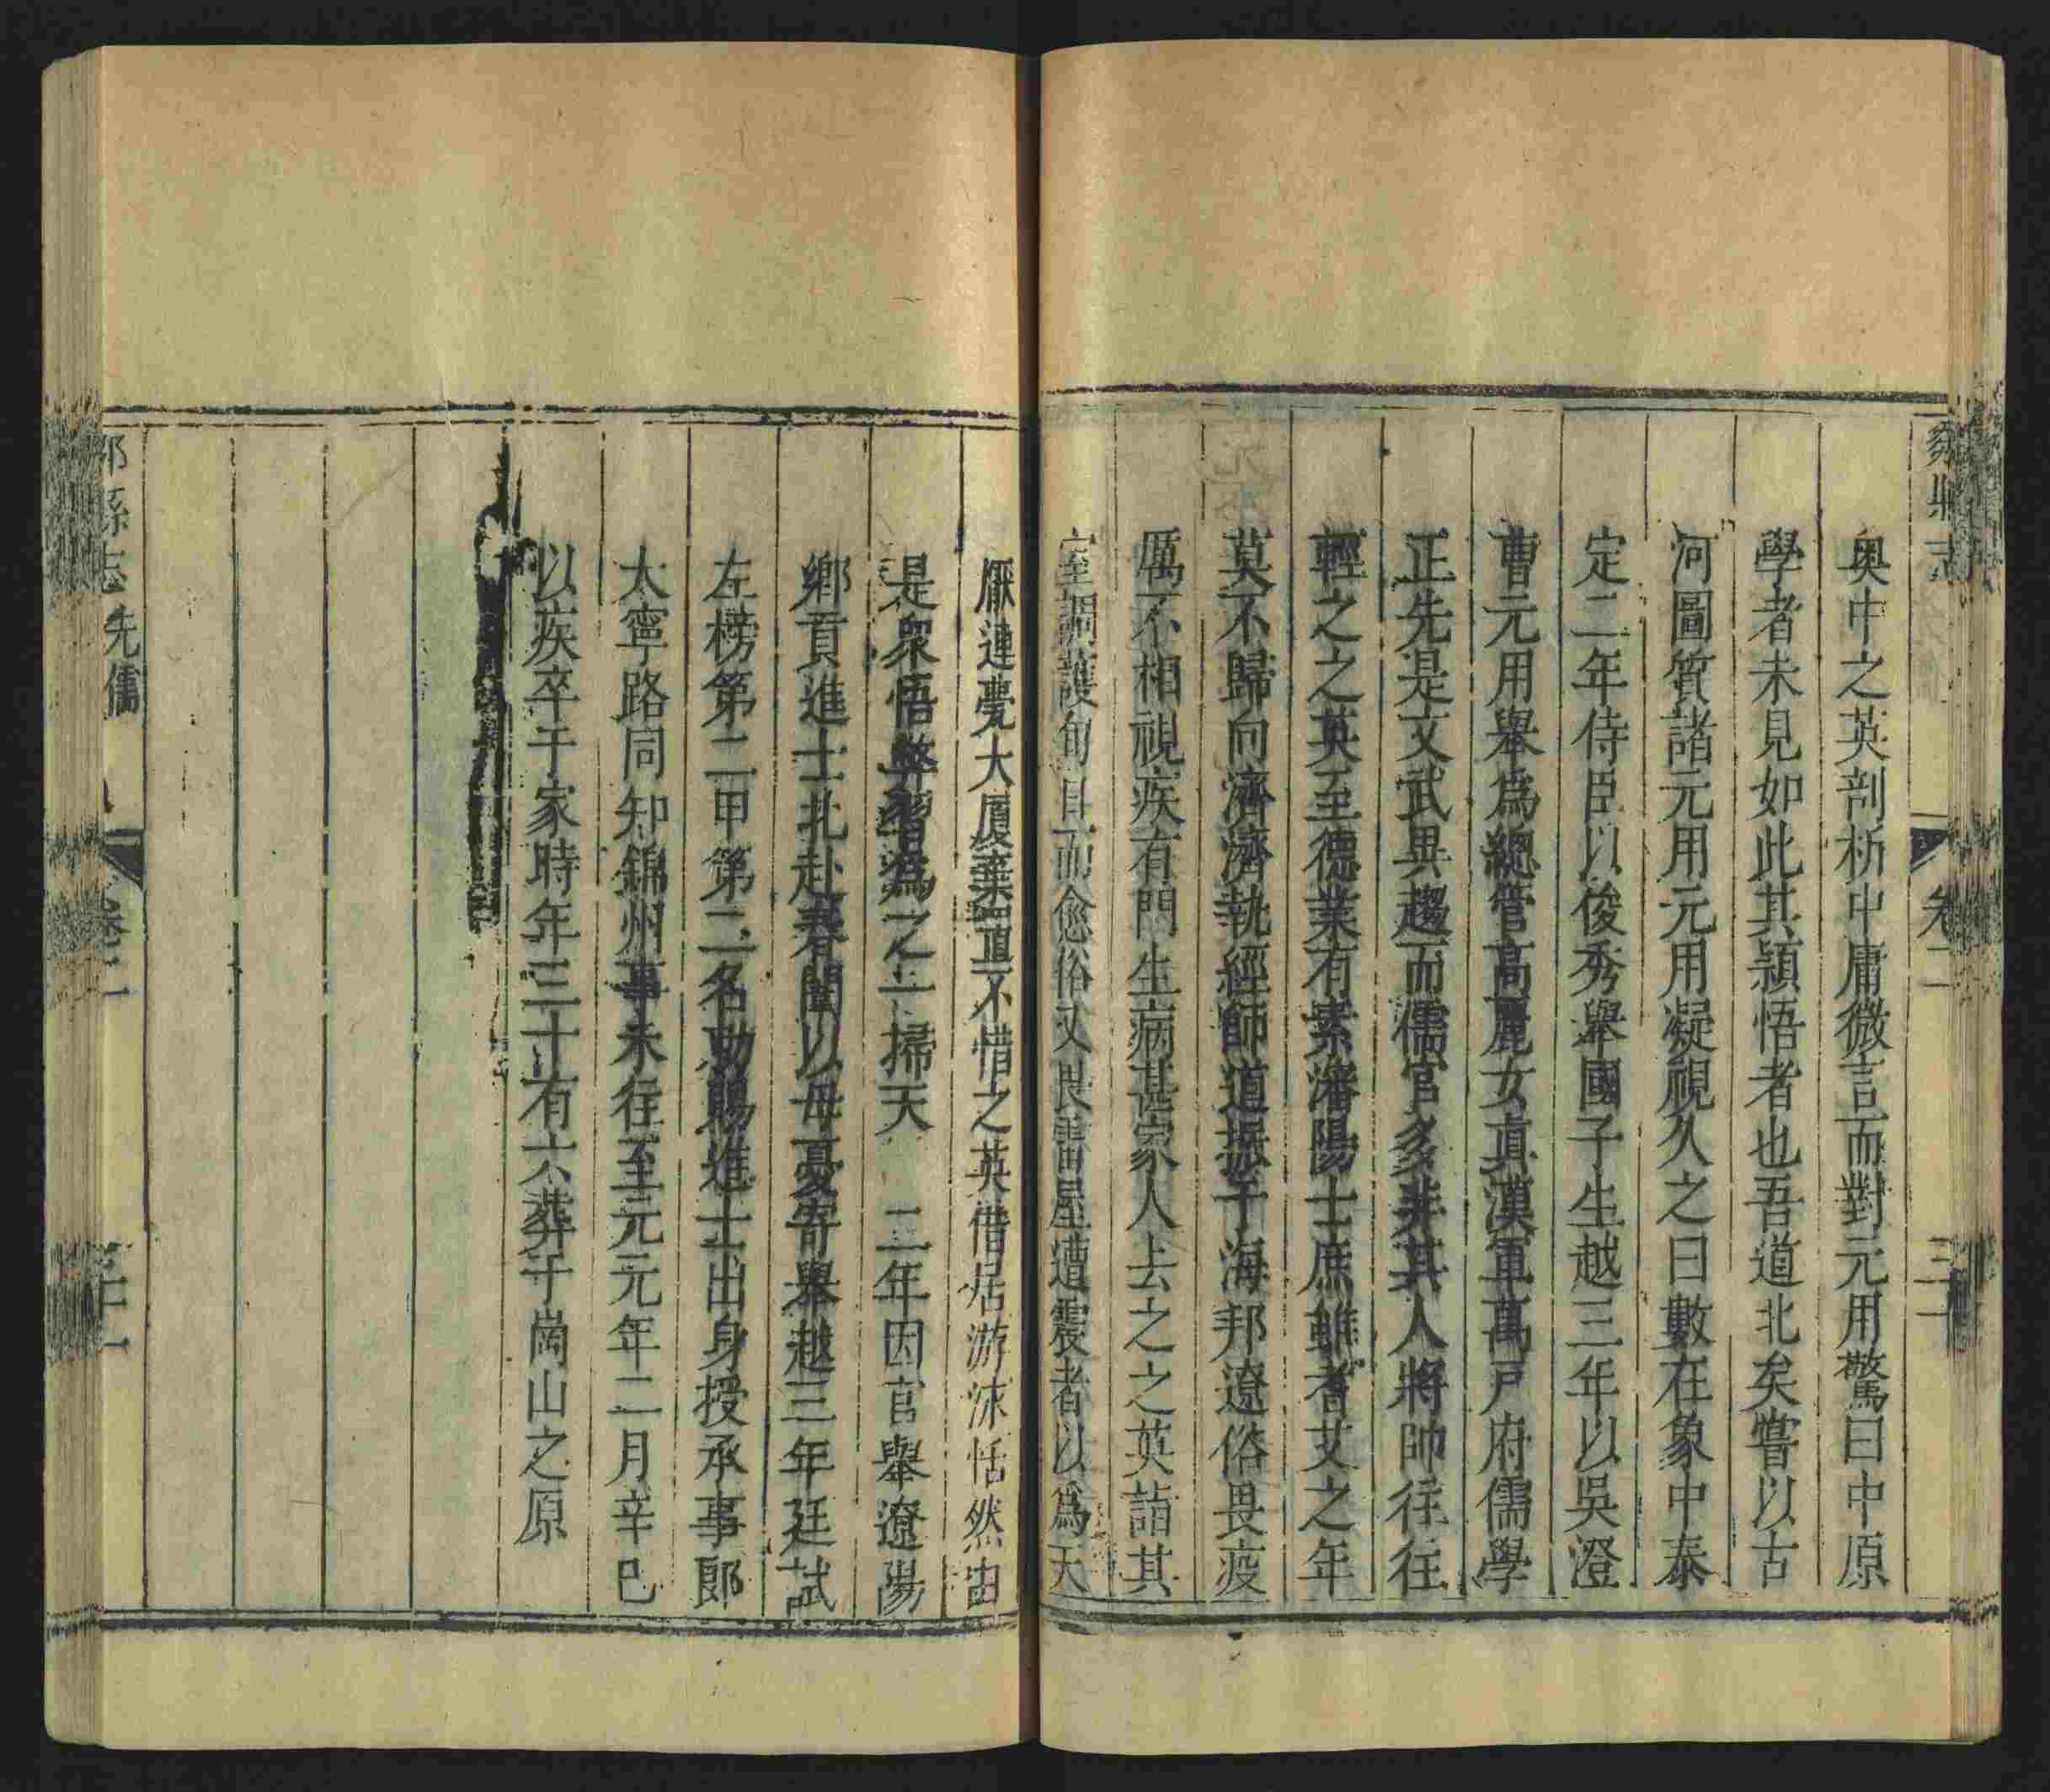 鄒縣志 卷二 三十一
奥中之英剖析中庸微言而對元用驚曰中原
學者未見如此其穎悟者也吾道北矣嘗以古
河圖質諸元用元用凝視久之曰數在象中泰
定二年侍臣以俊秀舉國子生越三年以吳澄
曹元用舉爲總管高麗女真漢軍萬戸府儒學
正先是文武異趨而儒官多非其人將帥往往
輕之之英至德業有素瀋陽士庶雖耆艾之年
莫不歸向濟濟執經師道振于海邦遼俗畏疫
厲不相視疾有門生病甚家人去之之英詣其
室調護旬日而愈俗又畏雷屋遭震者以爲天
厭連甍大厦棄置不惜之英借居游沐恬然由
是衆悟弊習爲之一掃天 二年因官舉遼陽
鄉貢進士北赴春闈以母憂寄舉越三年廷試
左榜第二甲第二名勑賜進士出身授承事郎
太寧路同知錦州事未往至元元年二月辛巳
以疾卒于家時年三十有六葬于崗山之原
縣志 先儒 卷二